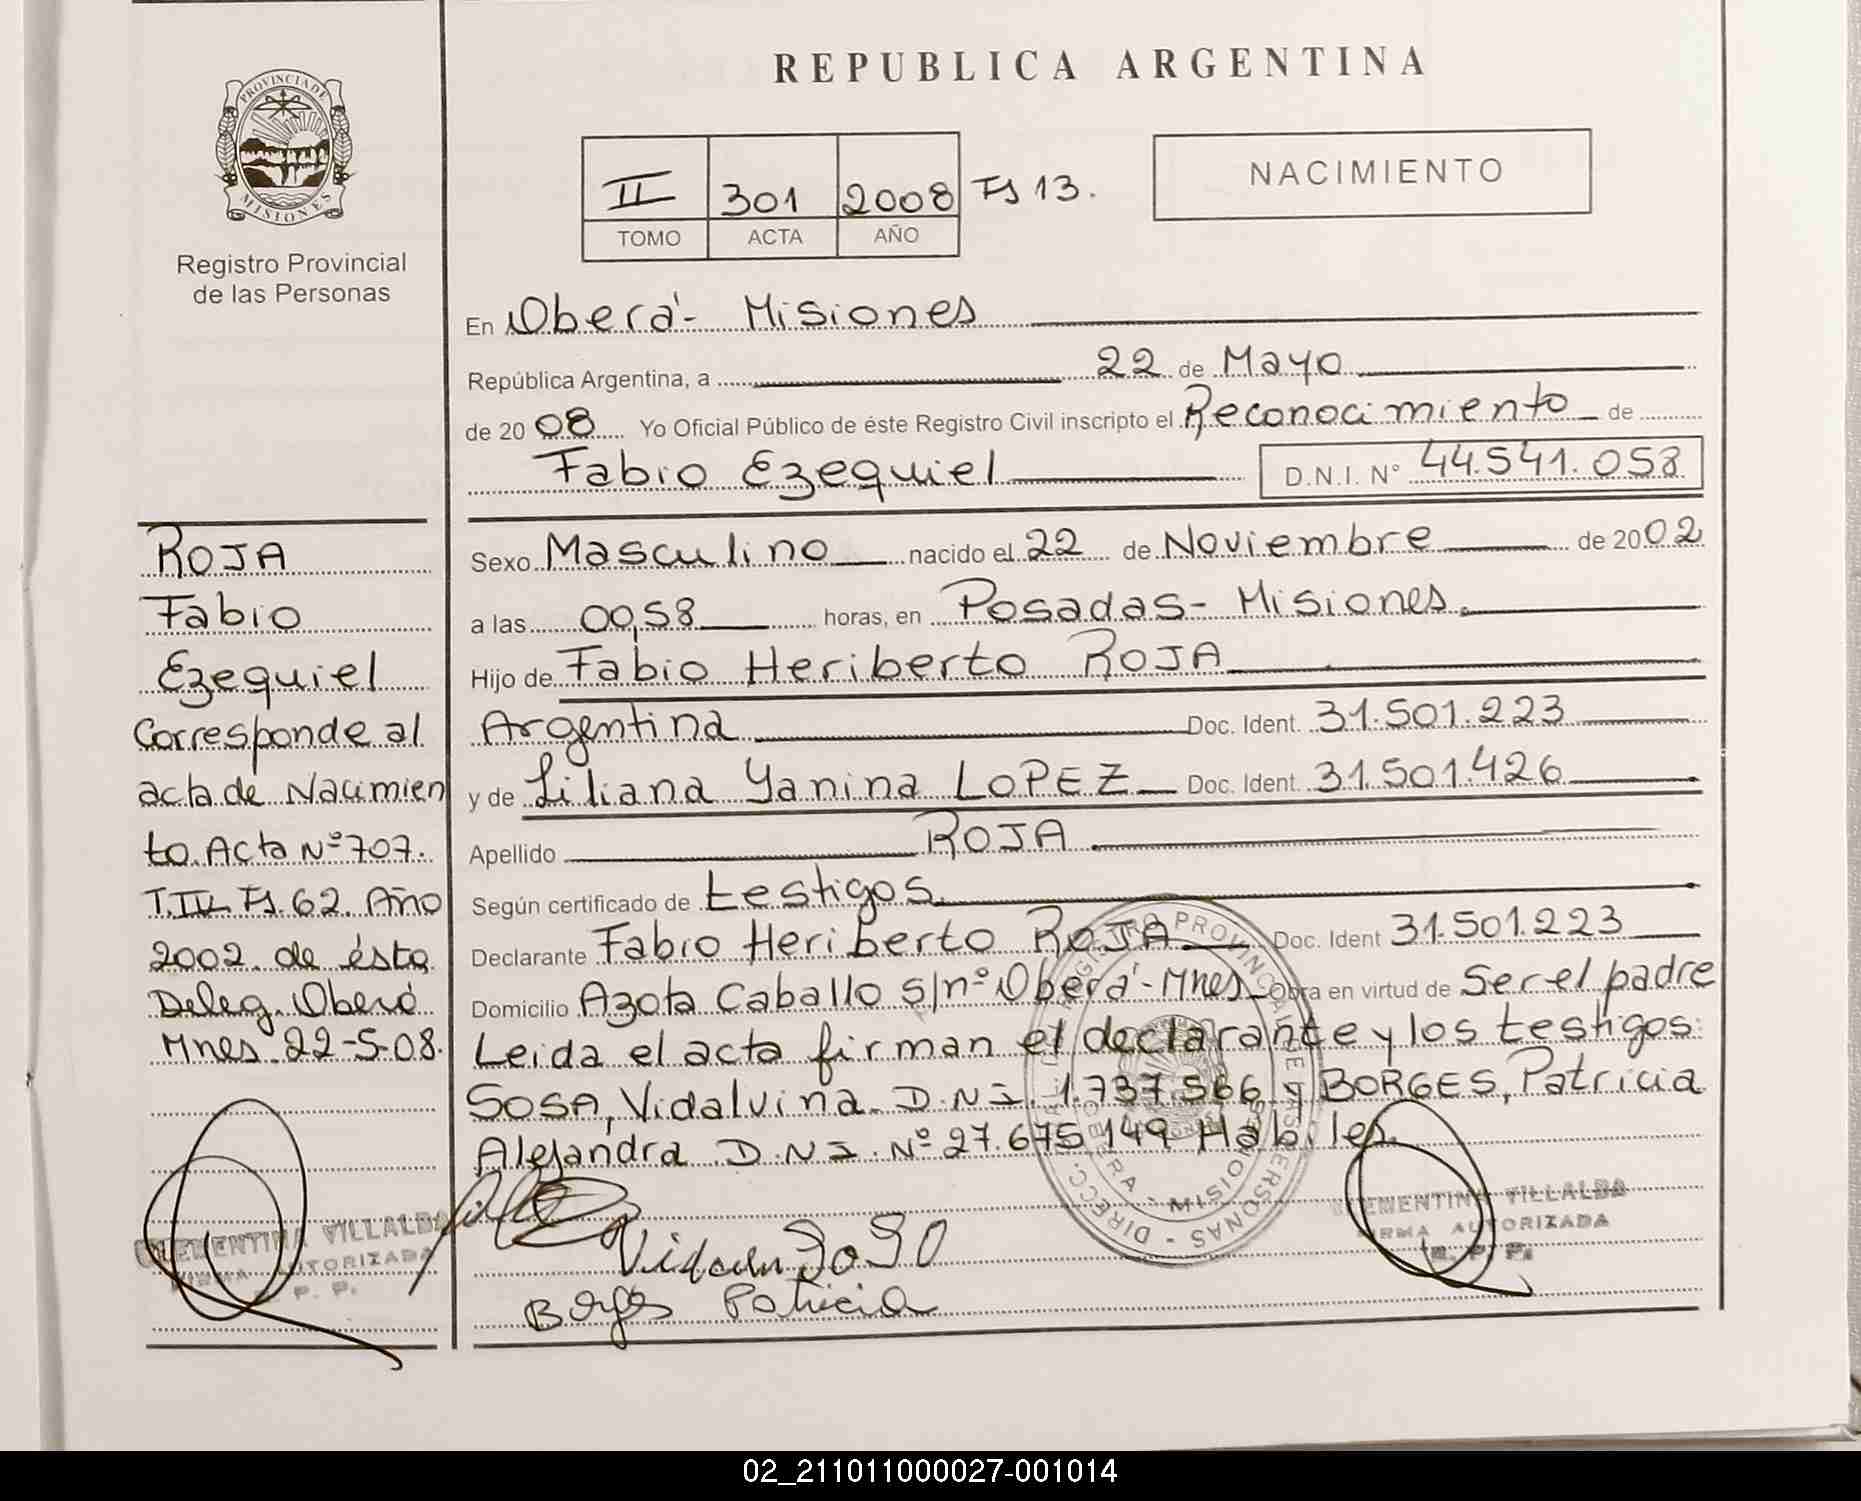 REPUBLICA ARGENTINA
PROVINCIA DE
MISIONES
Registro Provincial
de las Personas
II 301 2008 Fs 13.
TOMO ACTA AÑO
NACIMIENTO
En Oberá - Misiones
República Argentina, a 22 de Mayo
de 20 08 Yo Oficial Público de éste Registro Civil inscripto el Reconocimiento de
Fabio Ezequiel D.N.I. N° 44.541.058
Sexo Masculino nacido el 22 de Noviembre de 2002
a las 00,58 horas, en Posadas - Misiones.
Hijo de Fabio Heriberto ROJA
Argentina Doc. Ident. 31.501.223
y de Liliana Yanina LOPEZ Doc. Ident. 31.501.426
Apellido ROJA
Según certificado de testigos.
Declarante Fabio Heriberto ROJA Doc. Ident 31.501.223
Domicilio Azota Caballo s/nº Oberá - Mnes Obra en virtud de Ser el padre
Leida el acta firman el declarante y los testigos:
SOSA, Vidalvina. D.N.I. 1.737.566 y BORGES, Patricia
Alejandra D.N.I. Nº 27.675.149 Habiles.
ROJA
Fabio
Ezequiel
Corresponde al
acta de Nacimien
to. Acta Nº 707.
T. IV Fs. 62. Año
2002. de ésta
Deleg. Oberá
Mnes 22-5-08.
CLEMENTINA VILLALBA
FIRMA AUTORIZADA
R. P. P.
Borges Patricia
CLEMENTINA VILLALBA
FIRMA AUTORIZADA
R. P. P.
02_211011000027-001014